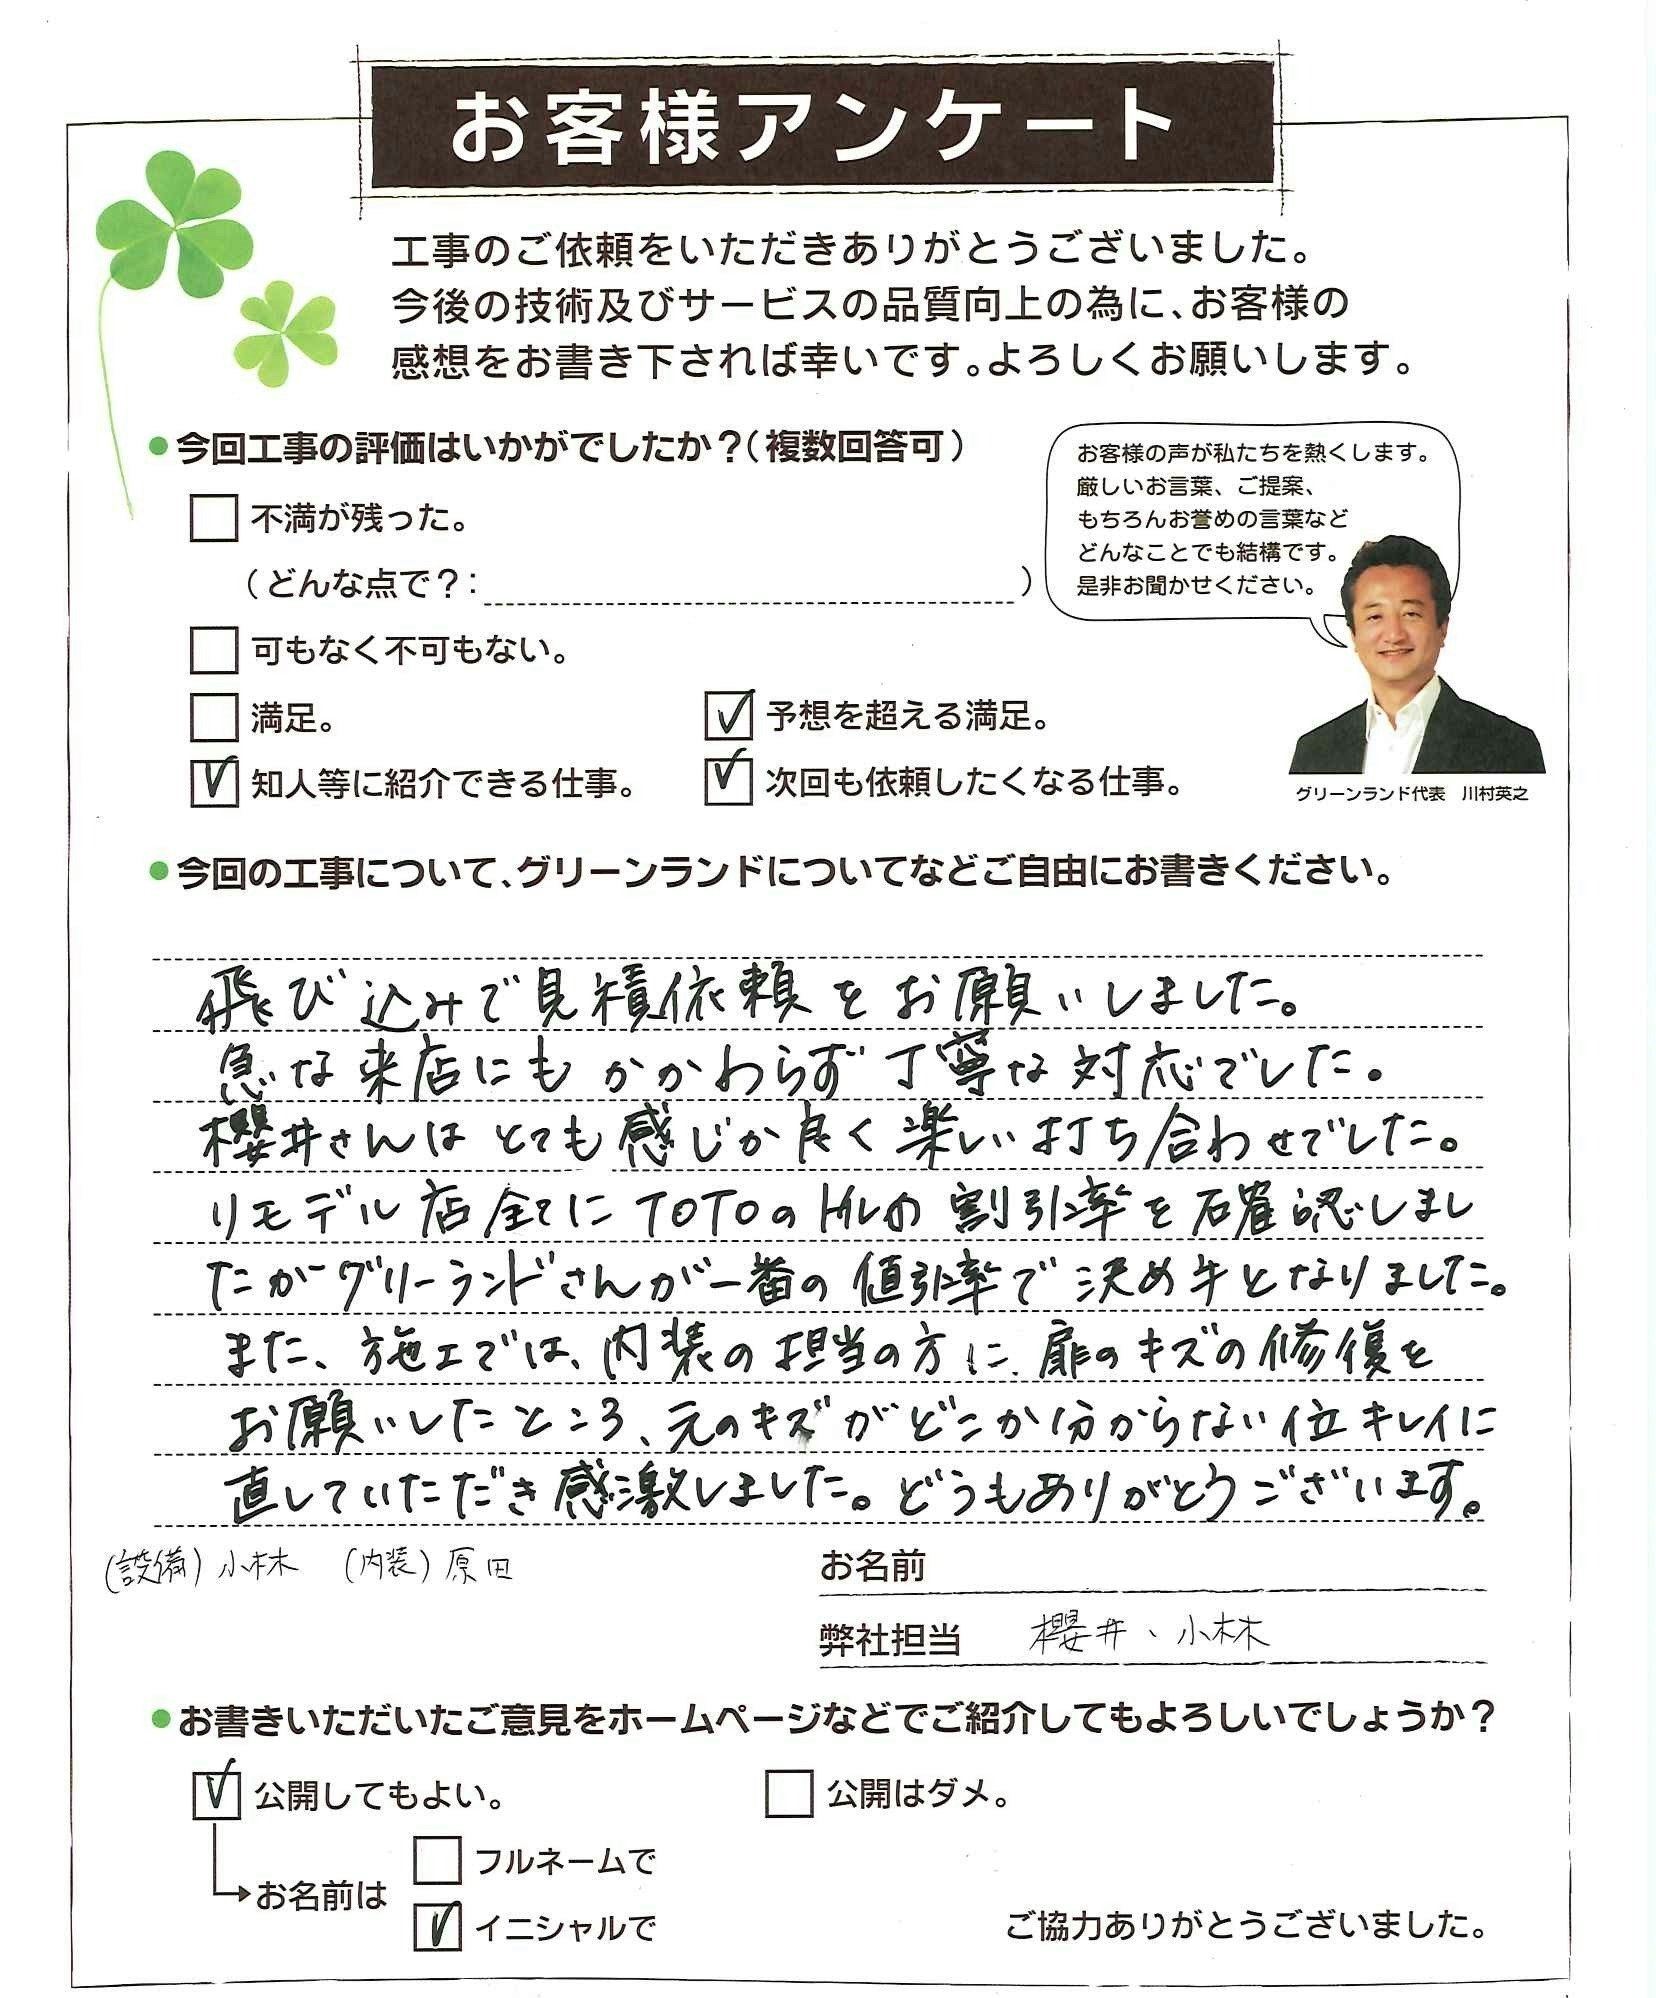 お客様アンケート
工事のご依頼をいただきありがとうございました。
今後の技術及びサービスの品質向上の為に、お客様の
感想をお書き下されば幸いです。よろしくお願いします。
●今回工事の評価はいかがでしたか?(複数回答可)
不満が残った。
(どんな点で?: )
可もなく不可もない。
満足。
予想を超える満足。
知人等に紹介できる仕事。
次回も依頼したくなる仕事。
お客様の声が私たちを熱くします。
厳しいお言葉、ご提案、
もちろんお誉めの言葉など
どんなことでも結構です。
是非お聞かせください。
グリーンランド代表 川村英之
●今回の工事について、グリーンランドについてなどご自由にお書きください。
飛び込みで見積依頼をお願いしました。
急な来店にもかかわらず丁寧な対応でした。
櫻井さんはとても感じか良く楽しい打ち合わせでした。
リモデル店全てにTOTOのトイレの割引率を確認しまし
たがグリーランドさんが一番の値引率で決め手となりました。
また、施工では、内装の担当の方に、扉のキズの修復を
お願いしたところ、元のキズがどこか分からない位キレイに
直していただき感激しました。どうもありがとうございます。
(設備)小林 (内装)原田
お名前
弊社担当 櫻井、小林
●お書きいただいたご意見をホームページなどでご紹介してもよろしいでしょうか?
公開してもよい。
公開はダメ。
お名前は
フルネームで
イニシャルで
ご協力ありがとうございました。